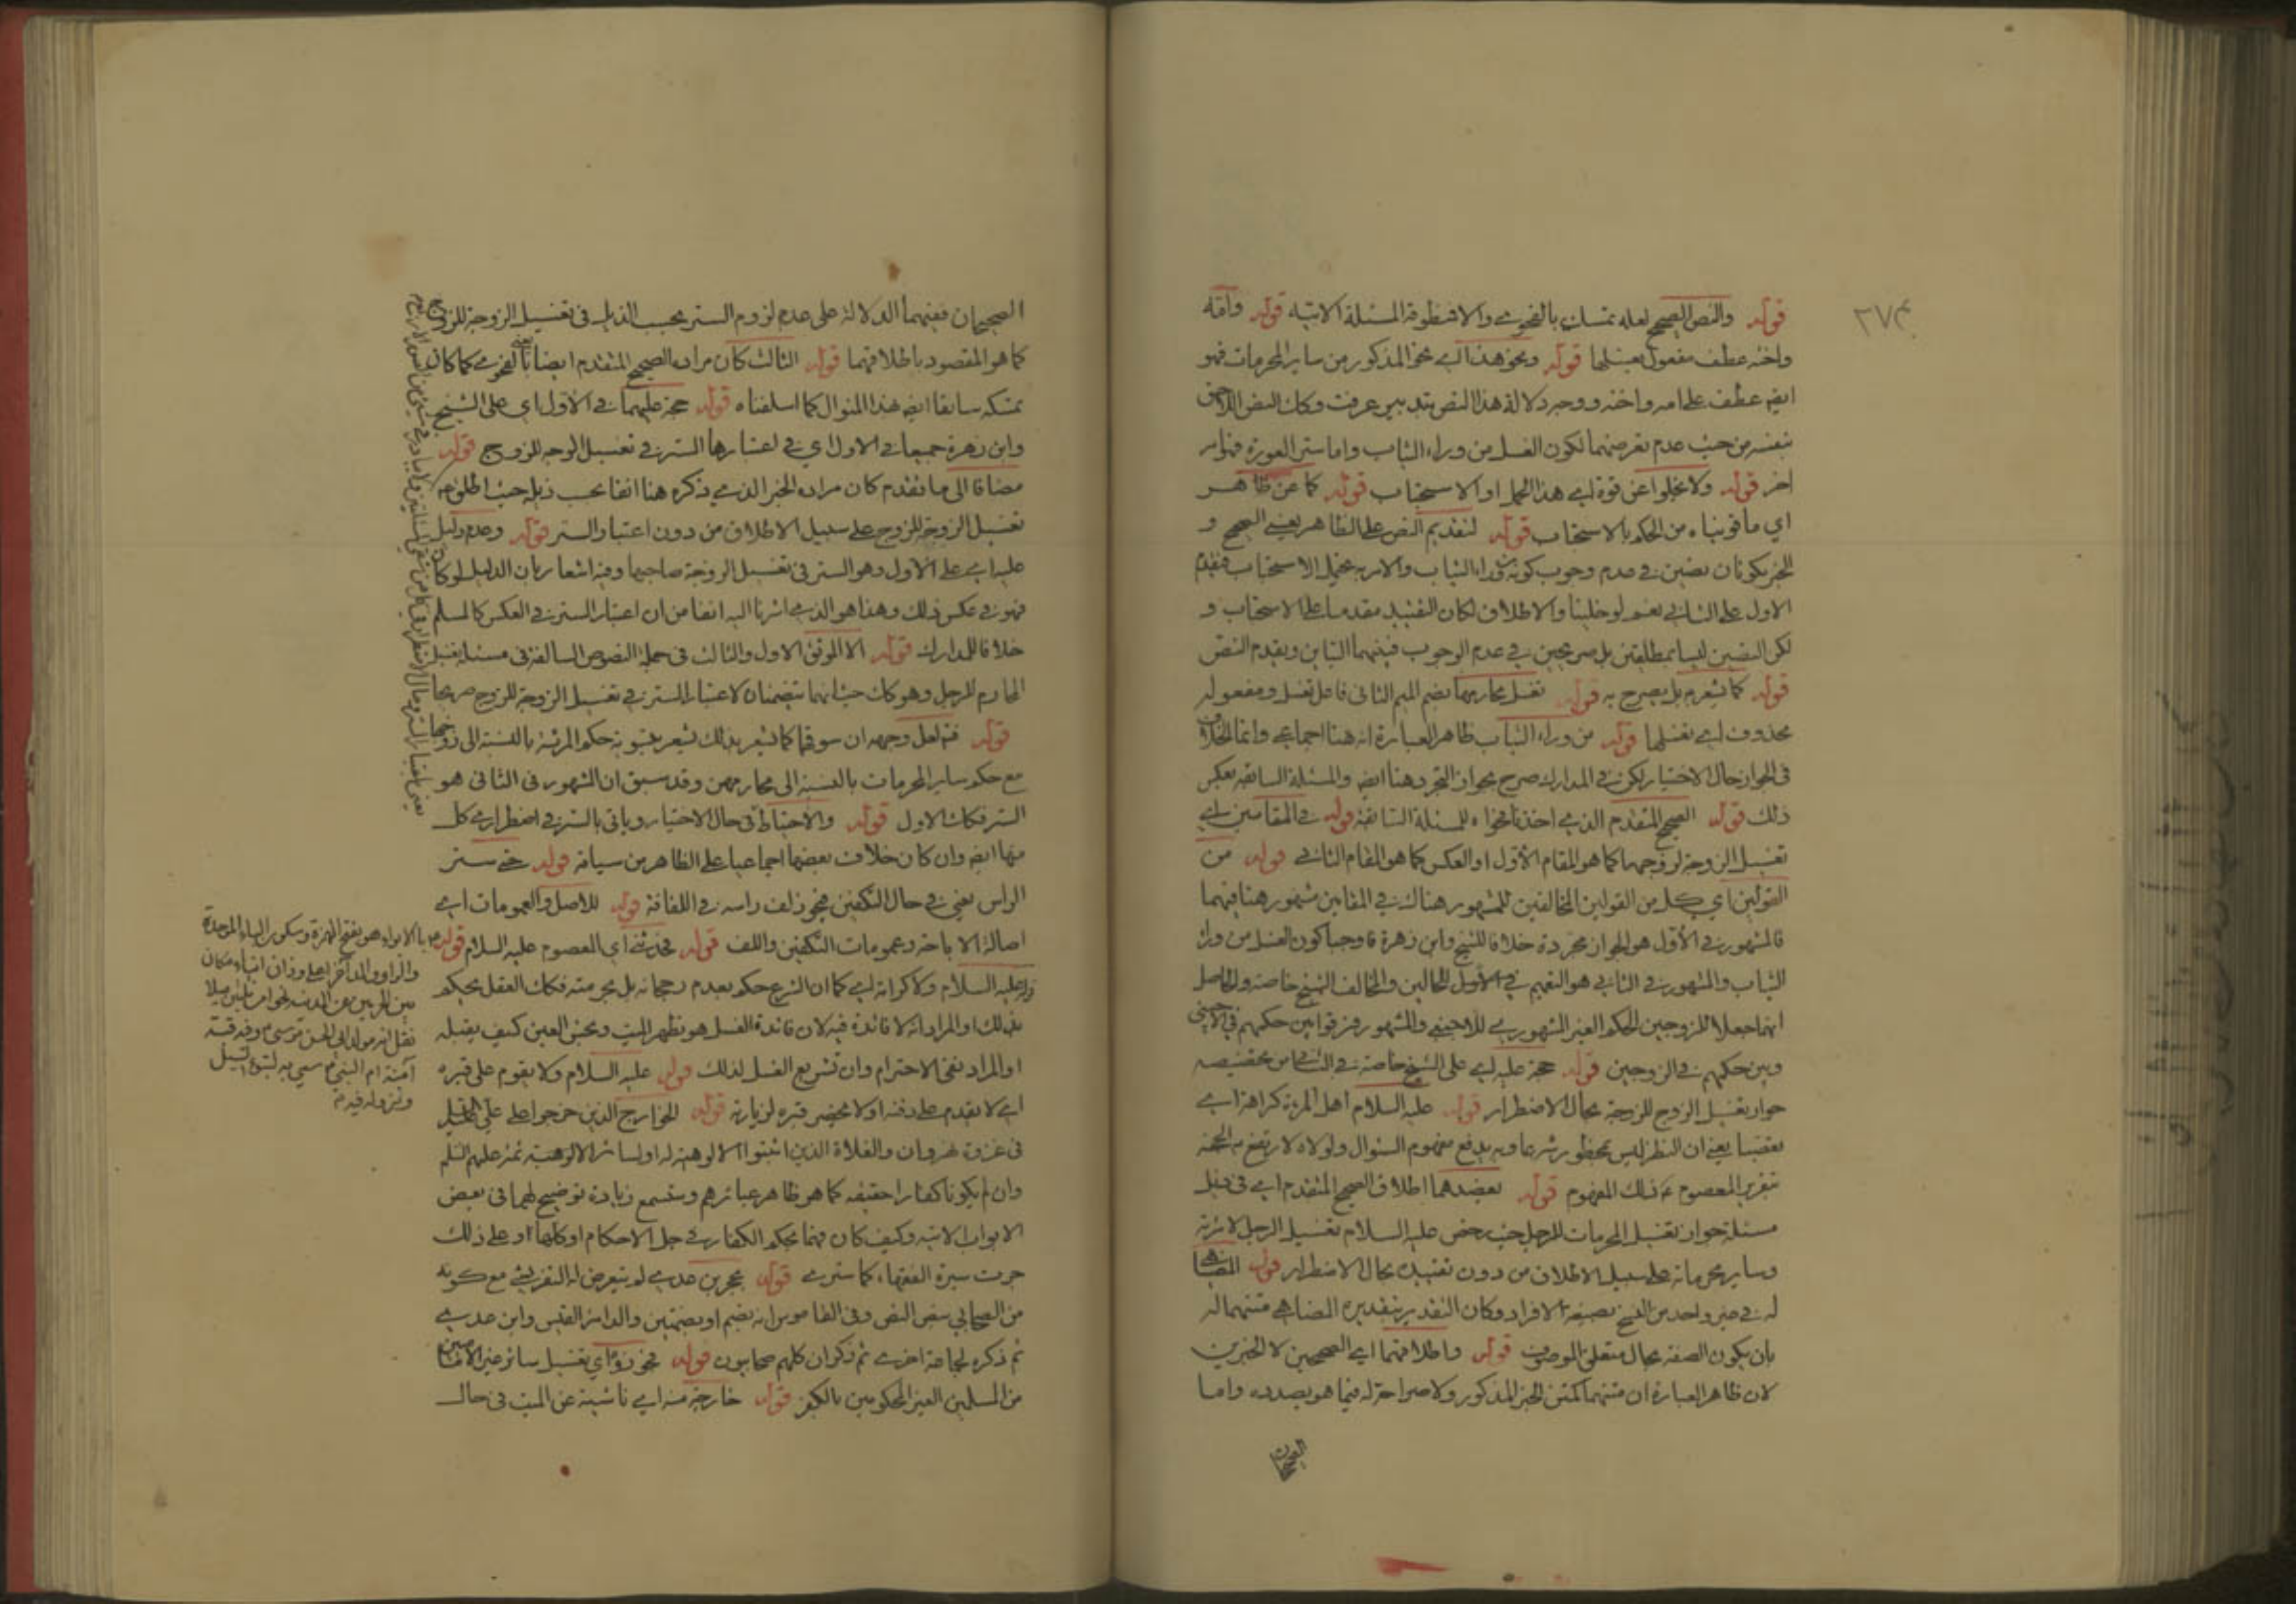 قوله والنص الصحيح لعله تمسك بالفحوى والا فمنطوقه المسئلة الاتية قوله وامه
واخته عطف مفعول يغسلها قوله ونحو هذا اى نحو المذكور من ساير المحرمات فهو
ايضا عطف على امه واخته ووجه دلالة هذا النص قد عرفت وكان النص
بنفسه من حيث عدم تعرضهما لكون الغسل من وراء الثياب واما ستر العورة فهو امر
اخر قوله ولا يخلو عن قوة اى هذا الحمل او الاستحباب قوله كما عن ظاهر
اي ما قويناه من الحكم بالاستحباب قوله لتقديم النص على الظاهر يعني الصحيح و
الخبر يكونان نصين في عدم وجوب كونه وراء الثياب والامر به يحتمل الاستحباب فيقدم
الاول على الثاني نعم لو خلينا والاطلاق لكان التقييد مقدما على الاستحباب و
لكن النصين ليسا بمطلقين بل صريحين في عدم الوجوب فبينهما التباين ويقدم النص
قوله كما يشعر بل يصرح به قوله تغسل محارمها بضم الميم الثاني فاعل تغسل ومفعوله
محذوف اى تغسلها قوله من وراء الثياب ظاهر العبارة انه هنا اجماعي وانما الخلاف
في الجواز حال الاختيار لكن في المدارك صرح بجواز التجرد هنا ايضا والمسئلة السابقة بعكس
ذلك قوله الصحيح المتقدم الذي اخذنا فحواه للمسئلة السابقة قوله في المقامين اى
تغسيل الزوجة لزوجها كما هو المقام الاول او العكس كما هو المقام الثاني قوله من
القولين اي كل من القولين المخالفين للمشهور هناك في المقامين مشهور هنا فيهما
فالمشهور في الاول هو الجواز مجردة خلافا للشيخ وابن زهرة فاوجبا كون الغسل من وراء
الثياب والمشهور في الثاني هو التعميم في الاول للحالين والمخالف الشيخ خاصة والحاصل
انهما جعلا للزوجين الحكم الغير المشهوري للاجنبي والمشهور فرقوا بين حكمهم في الاجنبي
وبين حكمهم في الزوجين قوله حجة عليه اى على الشيخ خاصة في الثاني من تخصيصه
جواز تغسيل الزوج للزوجة بحال الاضطرار قوله عليه السلام اهل المرءة كراهة اى
تعصبا يعني ان النظر ليس بمحظور شرعا وبه يدفع مفهوم السؤال ولولاه لارتفع به الحجة
بتقرير المعصوم ع ذلك المفهوم قوله يعضدهما اطلاق الصحيح المتقدم اى في ذيل
مسئلة جواز تغسيل المحرمات للرجل حيث رخص عليه السلام تغسيل الرجل لامرئته
وساير محرماته على سبيل الاطلاق من دون تقييده بحال الاضطرار قوله المضاهي
له في خبر واحد من النسخ بصيغة الافراد وكان التقدير بتقديره المضاهي متنهما له
بان يكون الصفة بحال متعلق الموصوف قوله واطلاقهما اى الصحيحين لا الخبرين
لان ظاهر العبارة ان متنهما كمتن الخبر المذكور ولا صراحة له فيما هو بصدده واما
الصحيحان
الصحيحان ففيهما الدلالة على عدم لزوم الستر بحسب الذيل في تغسيل الزوجة للزوج
كما هو المقصود باطلاقهما قوله الثالث كان مراده الصحيح المتقدم ايضا بالفحوى كما كان
تمسكه سابقا ايضا بهذا المنوال كما اسلفناه قوله حجة عليهما في الاول اي على الشيخ
وابن زهرة جميعا في الاول اي في اعتبارها الستر في تغسيل الزوجة للزوج قوله
مضافا الى ما تقدم كان مراده الخبر الذي ذكره هنا انفا بحسب ذيله حيث اطلق
تغسيل الزوجة للزوج على سبيل الاطلاق من دون اعتبار الستر قوله وعدم دليل
عليه اى على الاول وهو الستر في تغسيل الزوجة صاحبها وفيه اشعار بان الدليل لو كان
فهو في عكس ذلك وهذا هو الذي اشرنا اليه انفا من ان اعتبار الستر في العكس كالمسلم
خلافا للمدارك قوله الا الموثق الاول والثالث في جملة النصوص السالفة في مسئلة تغسيل
المحارم للرجل وهو كان حيث انهما يتضمنان لاعتبار الستر في تغسيل الزوجة للزوج صريحا
قوله فتم لعل وجهه ان سوقها كما يشعر بذلك يشعر بتسوية حكم المرئة بالنسبة الى زوجها
مع حكم ساير المحرمات بالنسبة الى محارمهن وقد سبق ان المشهور في الثاني هو
الستر فكان الاول قوله والاحتياط في حال الاختيار وياتي بالستر في اضطراري كل
منها ايضا وان كان خلاف بعضهما اجماعيا على الظاهر من سياقه قوله حتى ستر
الراس يعني في حال التكفين فيجوز لف راسه في اللفافة قوله للاصل والعمومات اى
اصالة الاباحة وعمومات التكفين واللف قوله فحدثني اي المعصوم عليه السلام قوله
عليه السلام ولا كرامة اى كما ان الشرع حكم بعدم رجحانه بل بحرمته فكان العقل يحكم
بذلك او المراد انه لا فائدة فيه لان فائدة الغسل هو تطهر الميت ونجس العين كيف يقبله
او المراد نفي الاحترام وان تشريع الغسل لذلك قوله عليه السلام ولا يقوم على قبره
اى لا يقدم على دفنه او لا يحضر قبره لزيارته قوله الخوارج الذين خرجوا على علي
في غزوة نهروان والغلاة الذين اثبتوا الالوهية له او لسائر الائمة عليهم السلم
وان لم يكونا كفارا حقيقة كما هو ظاهر عبائرهم وستسمع زيادة توضيح لهما في بعض
الابواب الاتية وكيف كان فهما بحكم الكفار في جل الاحكام او كلها او على ذلك
جرت سيرة الفقهاء كما سترى قوله بحجر بن عدي لم يتعرض له التفريشي مع كونه
من الصحابي بنص النص وفي القاموس انه بضم او بضمتين والد امرئ القيس وابن عدي
ثم ذكره لجماعة اخرى ثم ذكر ان كلهم صحابيون قوله فيجوز اي تغسيل سائر غير الامامية
من المسلمين الغير المحكومين بالكفر قوله خارجة منه اى ناشئة عن الميت في حال
بالابواء هو بفتح الهمزة وسكون الباء الموحدة
والواو والمد اخيرا على وزان انباء مكان
بين الحرمين عن المدينة نحوا من ثلثين ميلا
نقل انه مولد ابي الحسن موسى ع وفيه قبة
آمنة ام النبي ص سمي به لتبوء السيل
ونزوله فيه